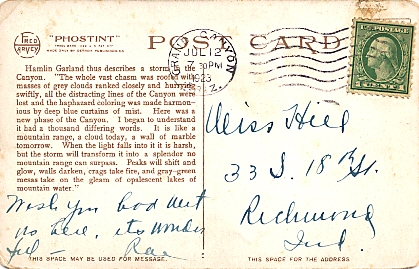 FRED HARVEY
"PHOSTINT"
POST CARD
GRAND CANYON
JUL 12
7 30PM
1923
ARIZ.
Hamlin Garland thus describes a storm in the
Canyon. "The whole vast chasm was roofed with
masses of grey clouds ranked closely and hurrying
swiftly, all the distracting lines of the Canyon were
lost and the haphazard coloring was made harmon-
ious by deep blue curtains of mist. Here was a
new phase of the Canyon. I began to understand
it had a thousand differing words. It is like a
mountain range, a cloud today, a wall of marble
tomorrow. When the light falls into it it is harsh,
but the storm will transform it into a splendor no
mountain range can surpass. Peaks will shift and
glow, walls darken, crags take fire, and gray-green
mesas take on the gleam of opalescent lakes of
mountain water."
Wish you had went
us here, its wonder
ful - Rae
THIS SPACE MAY BE USED FOR MESSAGE.
Miss Hill
33 S. 18th St.
Richmond
Ind.
THIS SPACE FOR THE ADDRESS